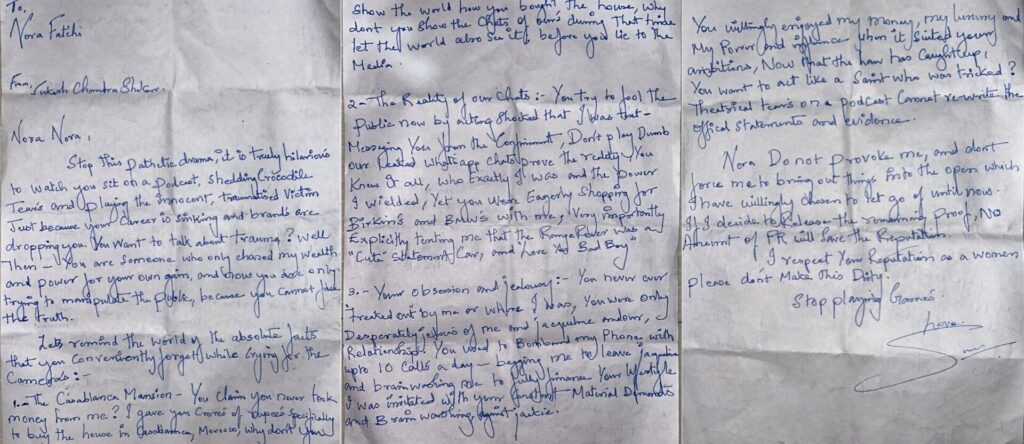 To,
Nora Fatehi
From, Sukash Chandra Shekar.
Nora Nora,
Stop this Pathetic drama, it is truly hilarious
to watch you sit on a Podcast, Shedding Crocodile
Tears and playing the innocent, traumatised Victim
Just because your Career is sinking and brands are
dropping you. You want to talk about trauma? Well
Then – You are someone who only chased my wealth
and power for your own gain, and now you are only
trying to manipulate the public, because you cannot face
the truth.
Lets remind the world of the absolute facts
that you Conveniently forgot while Crying for the
Camera's :-
1.- The Casablanca Mansion – You claim you never took
money from me? I gave you Crores of rupees specifically
to buy the house in Casablanca, Morocco, why don't you
Show the world how you bought the house, Why
dont you Show the Chats of ours during That time
let the world also see it, before you lie to the
Media.
2 - The Reality of our Chats :- You try to fool the
Public now by acting Shocked that I was that -
Messaging You from the Confinment, Don't play Dumb
our leaked whatsapp chats prove the reality. You
Knew it all, who Exactly I was and the power
I wielded, Yet you were Eagerly Shopping for
Birkin's and BMW's with me, Very importantly
Explicitly texting me that the Range Rover was a
"Cute" Statement Car, and have "Bad Boy"
3. - Your obsession and jealousy :- You never ever
treated out by me or where I was, you were only
Desperately jealous of me and Jacquline and our,
Relationship. You used to Bombard my Phone with
upto 10 Calls a day – begging me to leave Jacquline
and brainwashing me to fully finance Your lifestyle
I was irritated with your Constant Material Demands
and Brain washing against Jackie.
You willingly enjoyed my money, my luxury and
My Power and influence when it suited your
ambitions, Now that the law has Caught up,
You want to act like a Saint who was tricked?
Theatrical tears on a podcast Cannot re-write the
offical statements and evidence.
Nora Do not Provoke me, and dont
force me to bring out things into the open which
I have willingly chosen to let go of until now.
If I decide to Release the remaining Proof, No
Amount of PR will Save the Reputation
I respect Your Reputation as a women
please don't Make This Dirty.
Stop playing Games